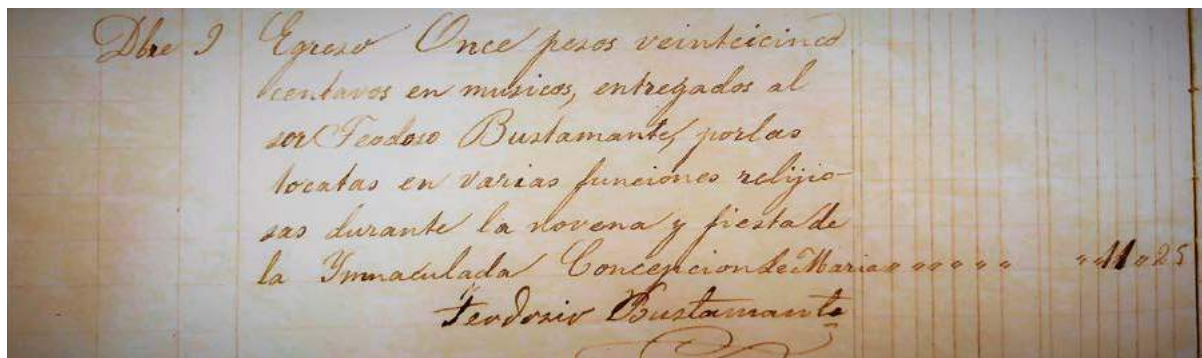 Dbre 9 Egreso Once pesos veinteicinco
centavos en musicos, entregados al
sor Teodoso Bustamante, por las
tocatas en varias funciones relijio-
sas durante la novena y fiesta de
la Ynmaculada Concepcion de Maria " " " " " " " " 11 " 25
Teodosio Bustamante